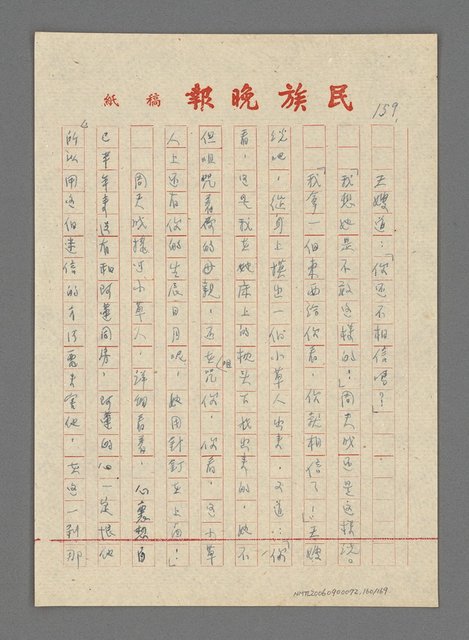 民族晚報 稿紙
159
王嫂道：「你還不相信嗎？」
「我想她是不敢這樣的！」周天成還是這樣說。
「我拿一個東西給你看，你就相信了！」王嫂
說吧，從身上摸出一個小草人出來，又道：「你
看，這是我在她床上的枕头下找出來的，她不
但咀咒着你的母親，還在咒咀你，你看，這小草
人上还有你的生辰日月呢，她用針釘在上面！」
周天成接过小草人，詳細看着，心裏想自
已半年來沒有和阿蓮同房，阿蓮的心一定恨他
所以用這個迷信的方法要來害他，在這一刹那
NMTL20060900072, 160/169